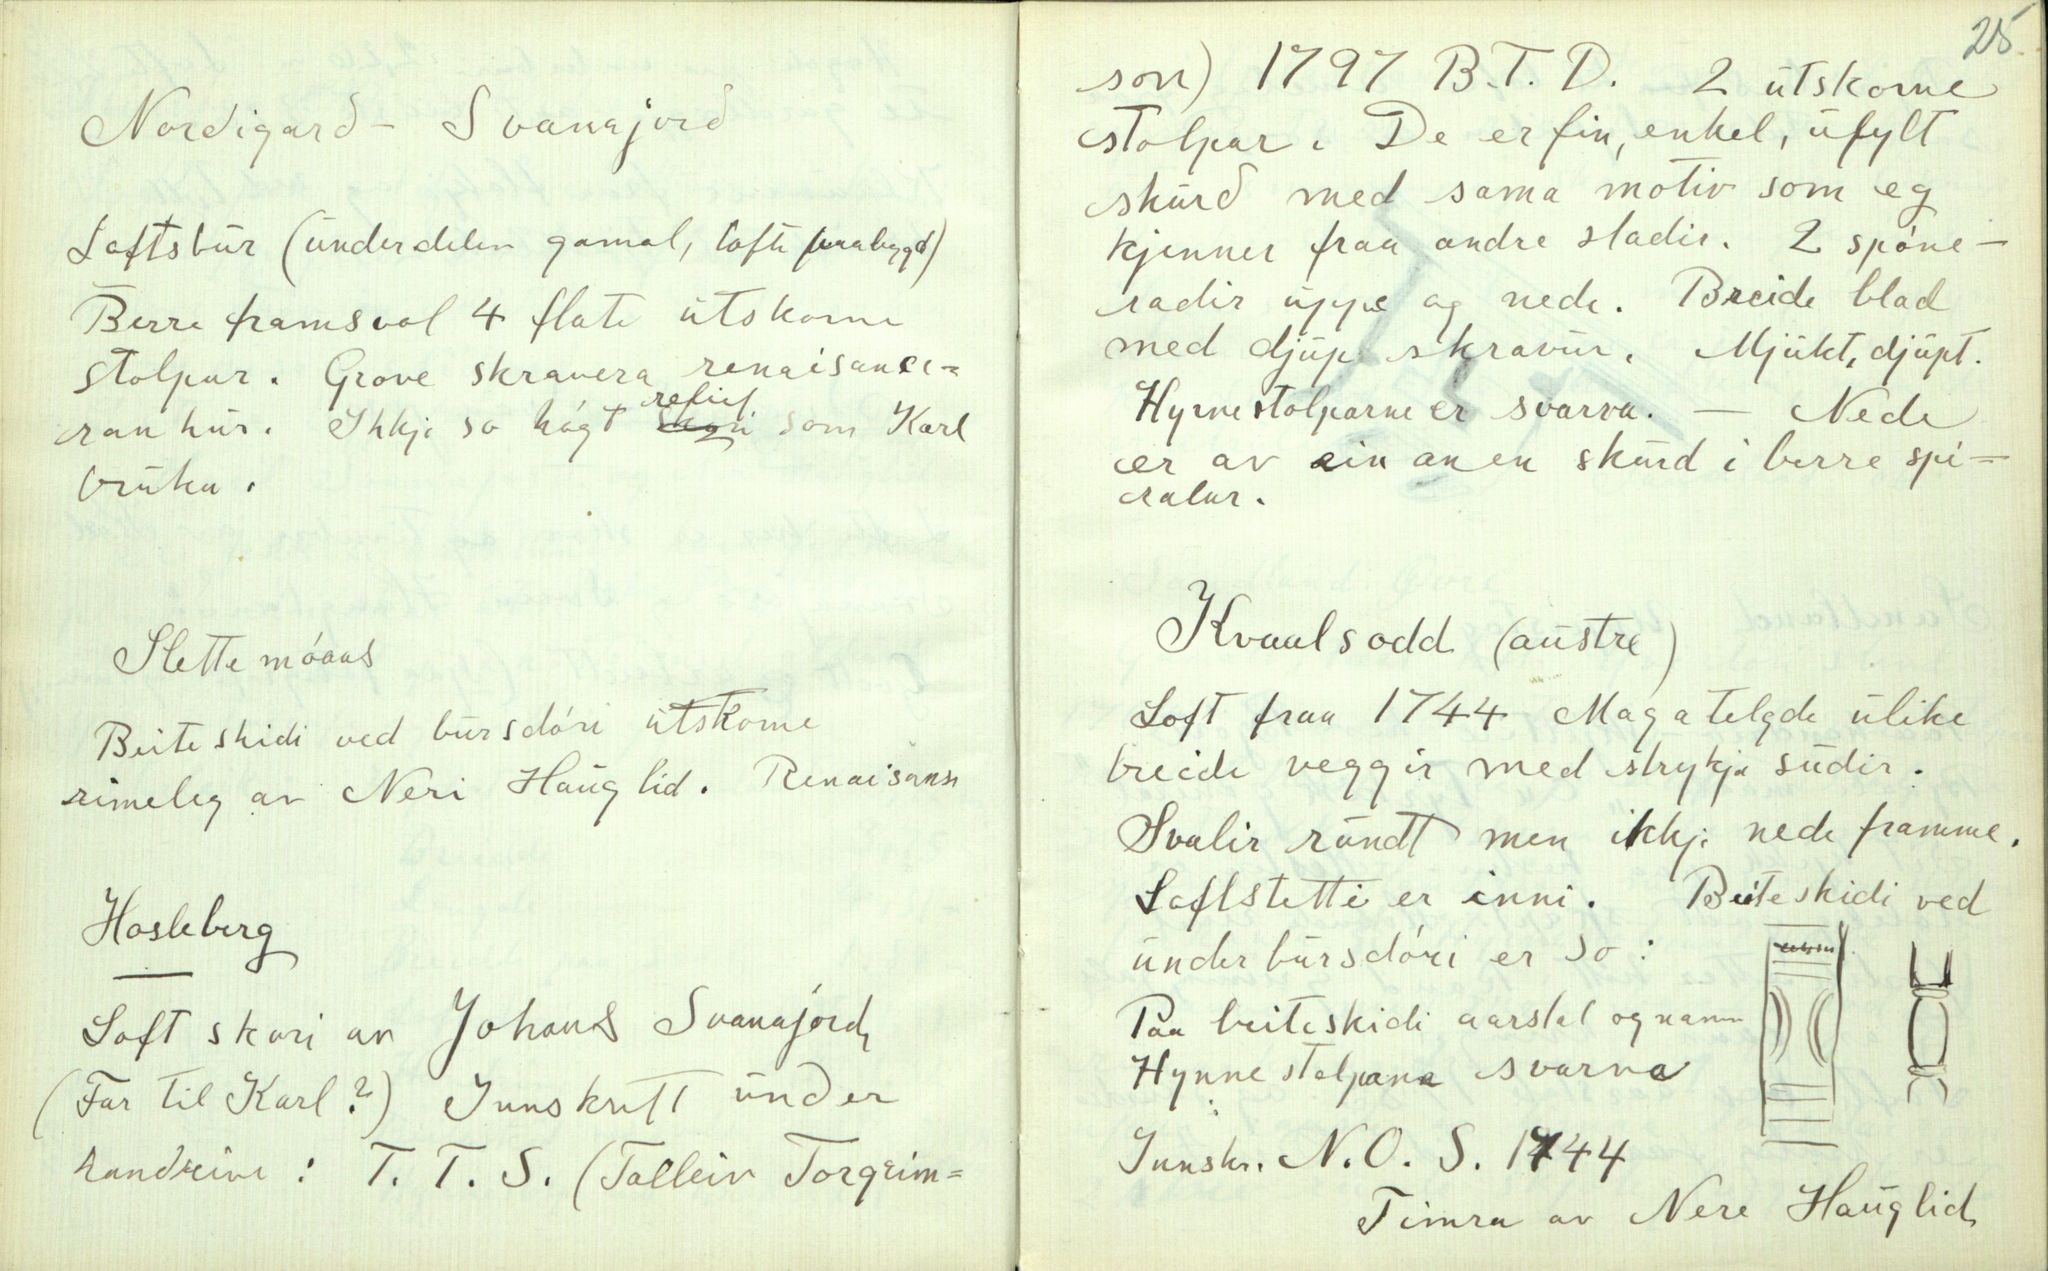 Nordigard - Svanajord
Loftsbur (underdelen gamal, lofte paabygd)
Berre framsval 4 flate utskorne
stolpar. Grove skravera renaisance-
rankur. Ikkje so högt relief som Karl
bruka.
Slettemóans
Beiteskidi ved bursdóri utskorne
rimeleg av Neri Hauglid. Renaisans
Hasleberg
Loft skori av Johans Svanajord,
(Far til Karl?) Innskrift under
handreive: T. T. S. (Talleiv Torgrim-
25
son) 1797 B.T.D. 2 utskorne
stolpar. De er fin, enkel, ufylt
skurd med sama motiv som eg
kjenner fraa andre stadir. 2 spóne-
radir uppe og nede. Breide blad
med djup skravur. Mjukt, djupt.
Hyrnestolparne er svarva. — Nede
er av ein anen skurd i berre spi-
ralar.
Kvaalsodd (austre)
Loft fraa 1744 Magatelgde ulike
breide veggir med strykja sudir.
Svalir rundt men ikkje nede framme.
Loftstetti er inni. Beiteskidi ved
under bursdóri er so:
Paa beiteskidi aarstal og namn
Hynnestolpana svarva
Innskr. N.O. S. 1744
Timra av Nere Hauglid